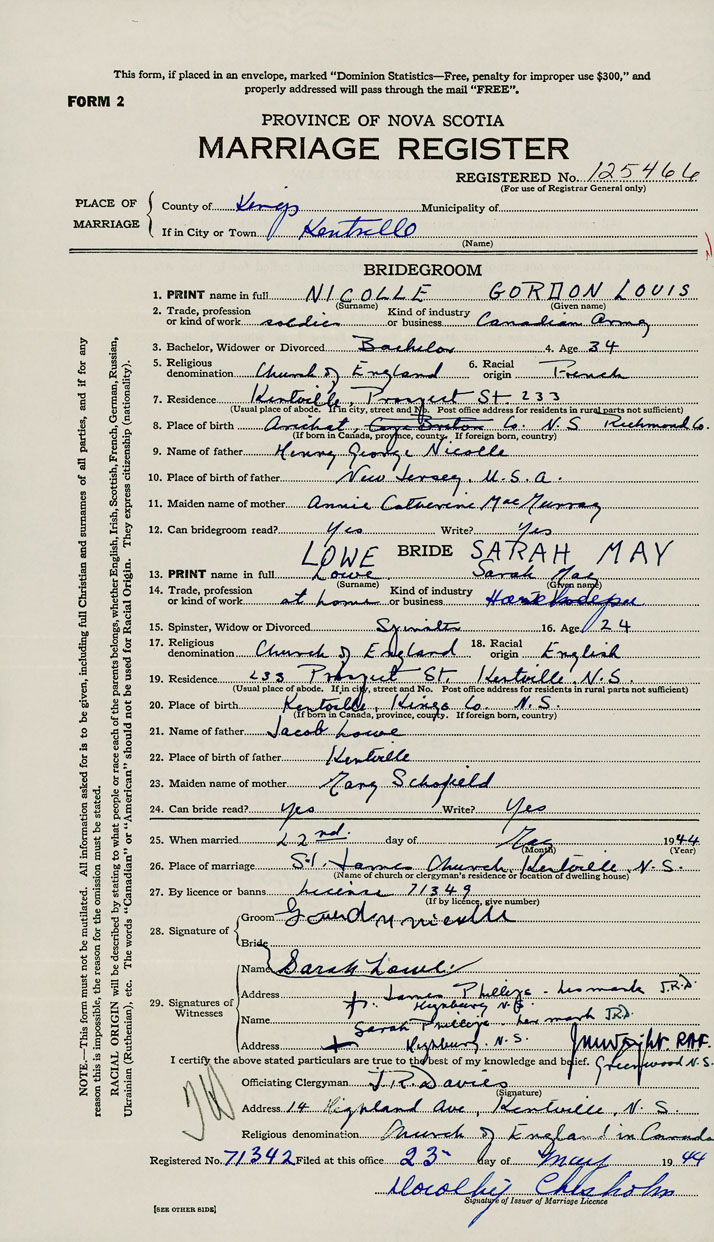 This form, if placed in an envelope, marked "Dominion Statistics—Free, penalty for improper use $300," and
properly addressed will pass through the mail "FREE".
FORM 2
PROVINCE OF NOVA SCOTIA
MARRIAGE REGISTER
REGISTERED No. 125466
(For use of Registrar General only)
PLACE OF MARRIAGE
County of Kings Municipality of
If in City or Town Kentville
(Name)
BRIDEGROOM
1. PRINT name in full NICOLLE GORDON LOUIS
(Surname) (Given name)
2. Trade, profession or kind of work soldier Kind of industry or business Canadian Army
3. Bachelor, Widower or Divorced Bachelor 4. Age 34
5. Religious denomination Church of England 6. Racial origin French
7. Residence Kentville, Prospect St 233
(Usual place of abode. If in city, street and No. Post office address for residents in rural parts not sufficient)
8. Place of birth Arichat, Cape Breton Co. N.S Richmond Co.
(If born in Canada, province, county. If foreign born, country)
9. Name of father Henry George Nicolle
10. Place of birth of father New Jersey, U.S.A.
11. Maiden name of mother Annie Catherine MacMurray
12. Can bridegroom read? Yes Write? Yes
LOWE BRIDE SARAH MAY
13. PRINT name in full Lowe Sarah May
(Given name)
14. Trade, profession or kind of work at home Kind of industry or business
15. Spinster, Widow or Divorced Spinster 16. Age 24
17. Religious denomination Church of England 18. Racial origin English
19. Residence 233 Prospect St. Kentville, N.S.
(Usual place of abode. If in city, street and No. Post office address for residents in rural parts not sufficient)
20. Place of birth Kentville, Kings Co. N.S.
(If born in Canada, province, county. If foreign born, country)
21. Name of father Jacob Lowe
22. Place of birth of father Kentville
23. Maiden name of mother Mary Schofield
24. Can bride read? Yes Write? Yes
25. When married 22nd. day of May 1944
(Month) (Year)
26. Place of marriage St. James Church, Kentville, N.S.
(Name of church or clergyman's residence or location of dwelling house)
27. By licence or banns license 71349
(If by licence, give number)
28. Signature of
Groom Gourdon nicolle
Bride
29. Signatures of Witnesses
Name Sarah Lowe
Address James Phillips - his mark J.R.D.
N.S.
Name Sarah Phillips - her mark J.R.D.
Address N.S. JMWright. RAF.
I certify the above stated particulars are true to the best of my knowledge and belief. Greenwood N.S.
Officiating Clergyman J.R. Davies
(Signature)
Address 14 Highland Ave, Kentville, N.S.
Religious denomination Church of England in Canada
Registered No. 71342 Filed at this office 23 day of May 1944
Dorothy Chisholm
Signature of Issuer of Marriage Licence
[SEE OTHER SIDE]
NOTE.—This form must not be mutilated. All information asked for is to be given, including full Christian and surnames of all parties, and if for any
reason this is impossible, the reason for the omission must be stated.
RACIAL ORIGIN will be described by stating to what people or race each of the parents belongs, whether English, Irish, Scottish, French, German, Russian,
Ukrainian (Ruthenian), etc. The words "Canadian" or "American" should not be used for Racial Origin. They express citizenship (nationality).